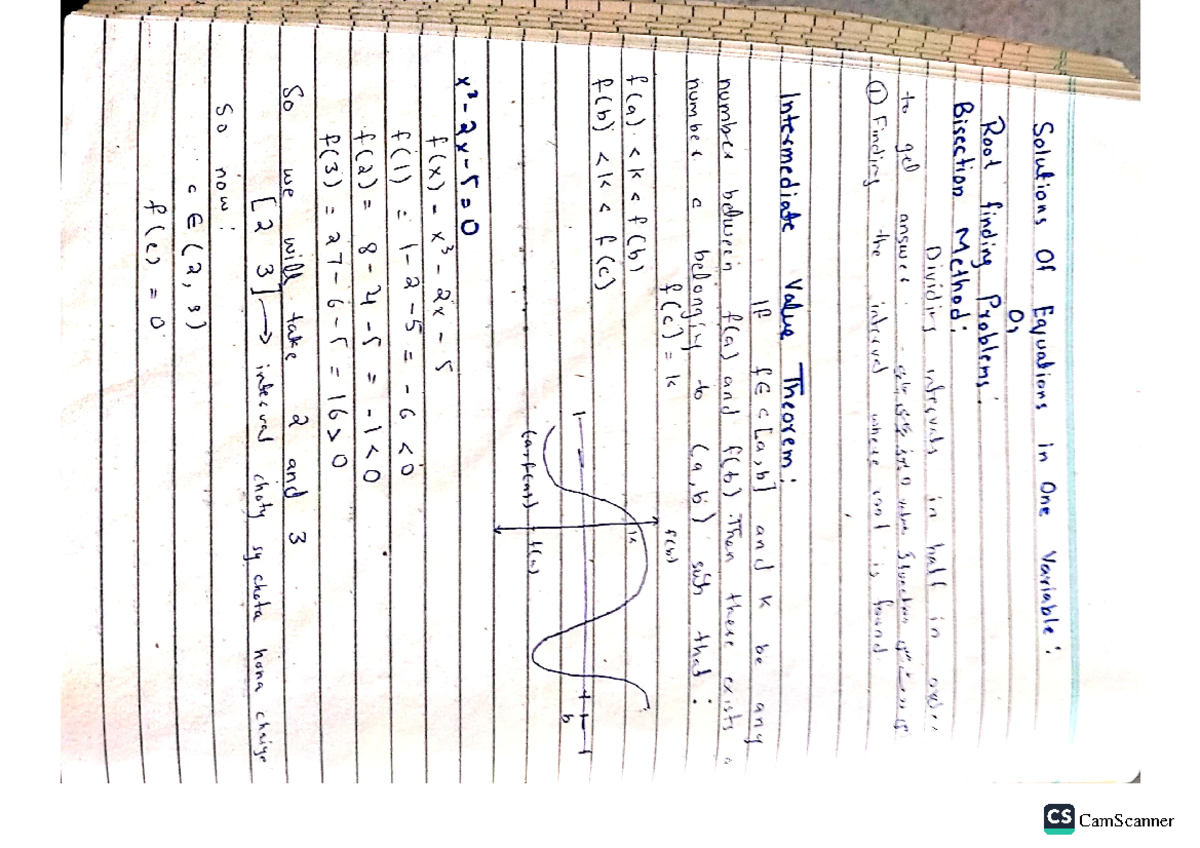 Solutions Of Equations in One Variable:
Or
Root finding Problems:
Bisection Method:
Dividing intervals in half in order
to get answer.
① Finding the interval where root is found.
Intermediate Value Theorem:
If f ∈ c[a,b] and K be any
number between f(a) and f(b). Then there exists a
number c belonging to (a,b) such that:
f(c) = k
f(a) < k < f(b)
f(b) < k < f(c)
f(b)
k
f(a)
(a, f(a))
b
x³ - 2x - 5 = 0
f(x) = x³ - 2x - 5
f(1) = 1 - 2 - 5 = - 6 < 0
f(2) = 8 - 4 - 5 = - 1 < 0
f(3) = 27 - 6 - 5 = 16 > 0
So we will take 2 and 3
[2 3] → interval choty sy chota hona chaiye
So now:
c ∈ (2, 3)
f(c) = 0
CS CamScanner